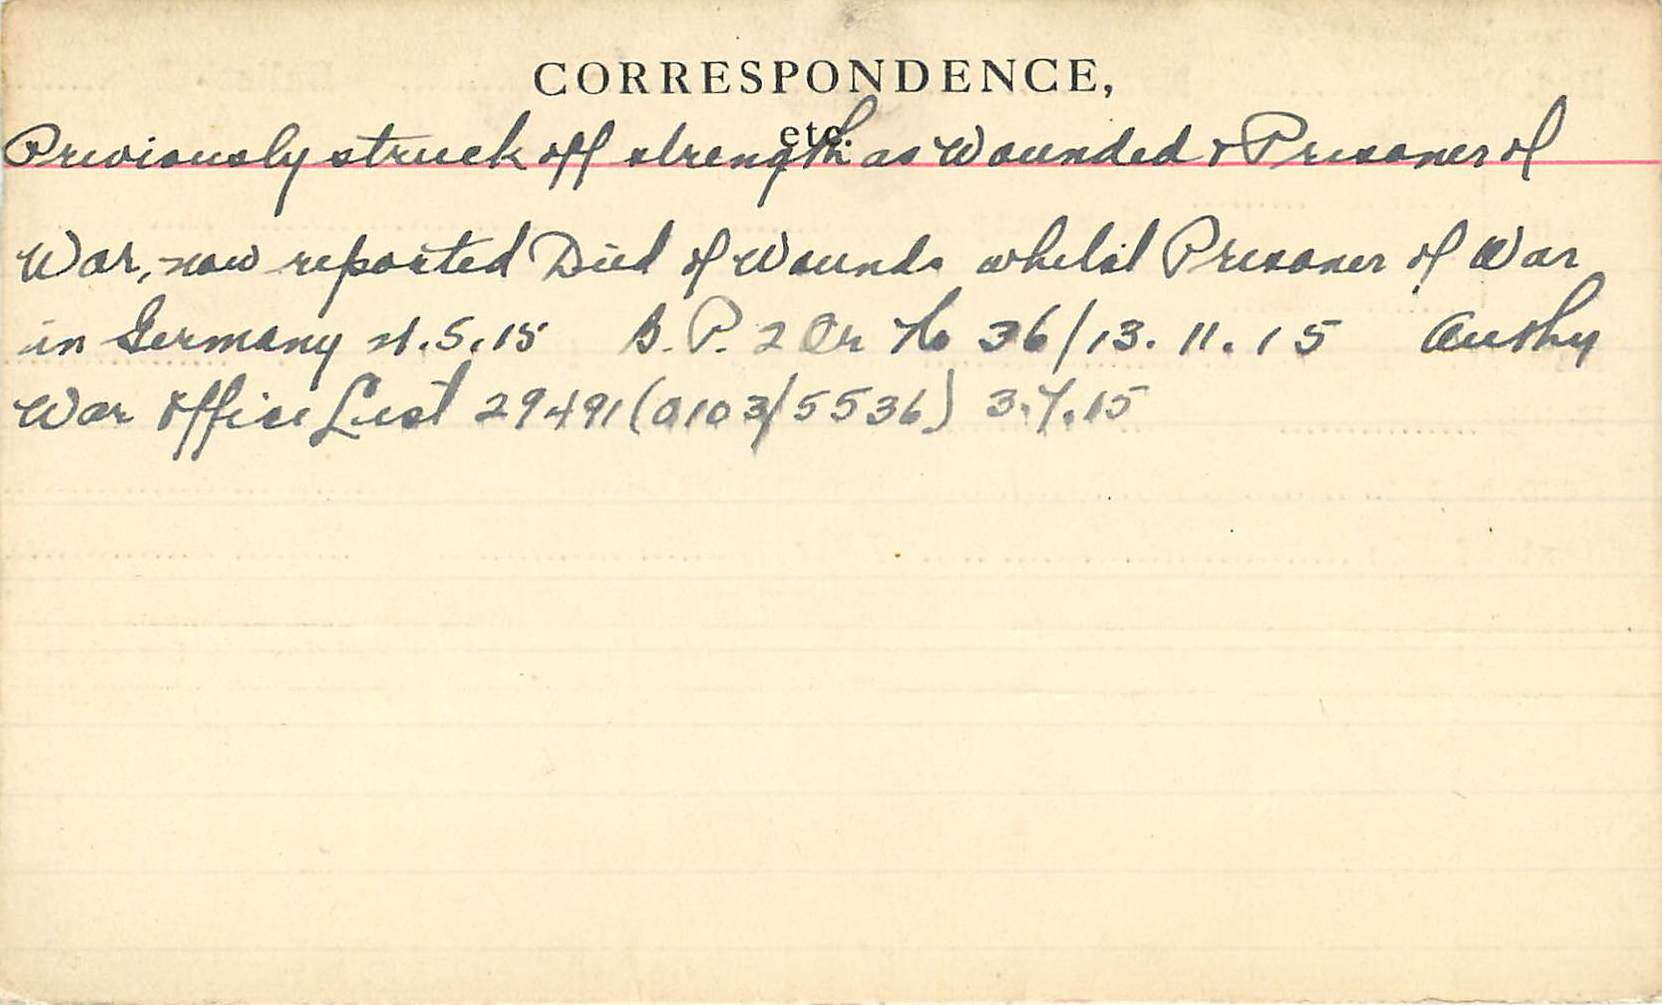 CORRESPONDENCE,
etc.
Previously struck off strength as Wounded & Prisoner of
War, now reported Died of Wounds whilst Prisoner of War
in Germany .5.15 B. P. 2 Or No 36/13.11.15 Authy
War Office List 29491(0103/5536) 3.7.15